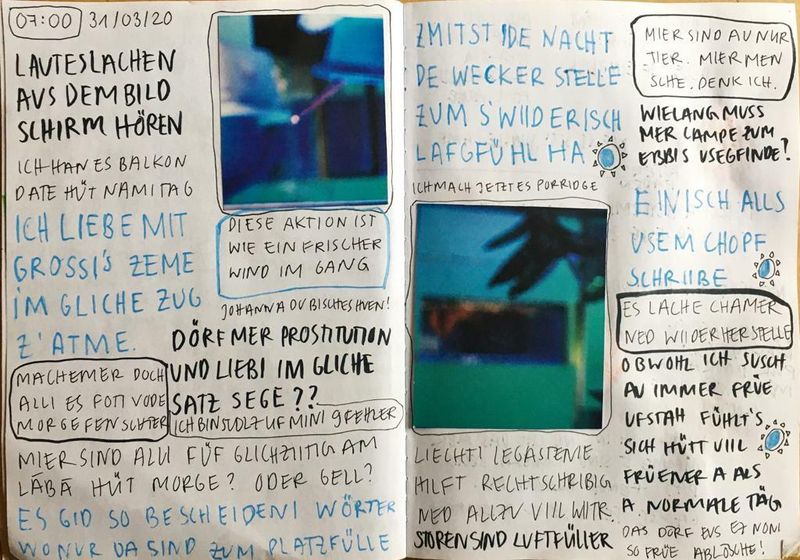 07:00 31/03/20
LAUTES LACHEN
AUS DEM BILD
SCHIRM HÖREN
ICH HAN ES BALKON
DATE HÜT NAMITAG
ICH LIEBE MIT
GROSSI'S ZEME
IM GLICHE ZUG
Z'ATME.
MACHEMER DOCH
ALLI ES FOTI VODE
MORGEFEINSCHTER
DIESE AKTION IST
WIE EIN FRISCHER
WIND IM GANG
JOHANNA DU BISCH ES HUEN!
DÖRF MER PROSTITUTION
UND LIEBI IM GLICHE
SATZ SEGE??
ICH BIN STOLZ UF MINI FEHLER
MIER SIND ALLI FÜF GLICHZIITIG AM
LÄBÄ HÜT MORGE? ODER GELL?
ES GID SO BESCHEIDENI WÖRTER
WO NUR DA SIND ZUM PLATZFÜLLE
ZMITST I DE NACHT
DE WECKER STELLE
ZUM S'WIIDERISCH
LAFGFÜHL HA
ICH MACH JETZT ES PORRIDGE
LIECHTI LEGASTENIE
HILFT RECHTSCHRIBIG
NED ALLZU VIIL WITR.
STOREN SIND LUFTFÜLLER
MIER SIND AU NUR
TIER. MIER MEN
SCHE. DENK ICH.
WIE LANG MUSS
MER CAMPE ZUM
ETBBIS USEGFINDE?
EINISCH ALLS
USEM CHOPF
SCHRIIBE
ES LACHE CHAMER
NED WIIDERHERSTELLE
OBWOHL ICH SUSCH
AU IMMER FRÜE
UFSTAH FÜHLT'S
SICH HÜTT VIIL
FRÜENER A ALS
A NORMALE TÄG
DAS DÖRF EUS EZ NONI
SO FRÜE ABLÖSCHE!